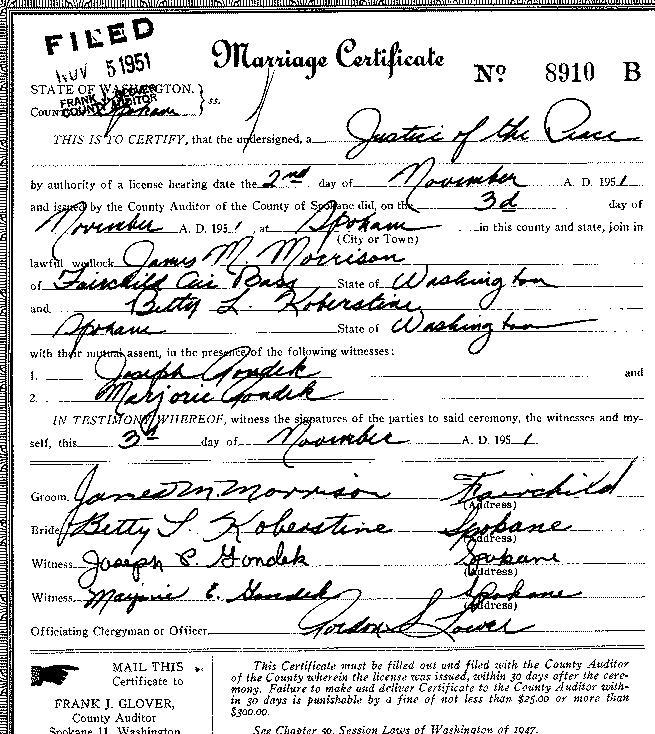 FILED
NOV 5 1951
FRANK J. GLOVER
COUNTY AUDITOR
Marriage Certificate
No 8910 B
STATE OF WASHINGTON. } ss.
County Spokane
THIS IS TO CERTIFY, that the undersigned, a Justice of the Peace
by authority of a license bearing date the 2nd day of November A. D. 1951
and issued by the County Auditor of the County of Spokane did, on the 3d day of
November A. D. 1951, at Spokane in this county and state, join in
(City or Town)
lawful wedlock James M. Morrison
of Fairchild Air Base State of Washington
and Betty L. Koberstine
Spokane State of Washington
with their mutual assent, in the presence of the following witnesses:
1. Joseph Gondek and
2. Marjorie Gondek
IN TESTIMONY WHEREOF, witness the signatures of the parties to said ceremony, the witnesses and my-
self, this 3d day of November A. D. 1951.
Groom. James M. Morrison Fairchild
(Address)
Bride Betty L. Koberstine Spokane
(Address)
Witness. Joseph P. Gondek Spokane
(Address)
Witness. Marjorie E. Gondek Spokane
(Address)
Officiating Clergyman or Officer. Gordon S. Lower
MAIL THIS
Certificate to
FRANK J. GLOVER,
County Auditor
Spokane 11, Washington
This Certificate must be filled out and filed with the County Auditor
of the County wherein the license was issued, within 30 days after the cere-
mony. Failure to make and deliver Certificate to the County Auditor with-
in 30 days is punishable by a fine of not less than $25.00 or more than
$300.00.
See Chapter 59, Session Laws of Washington of 1947.